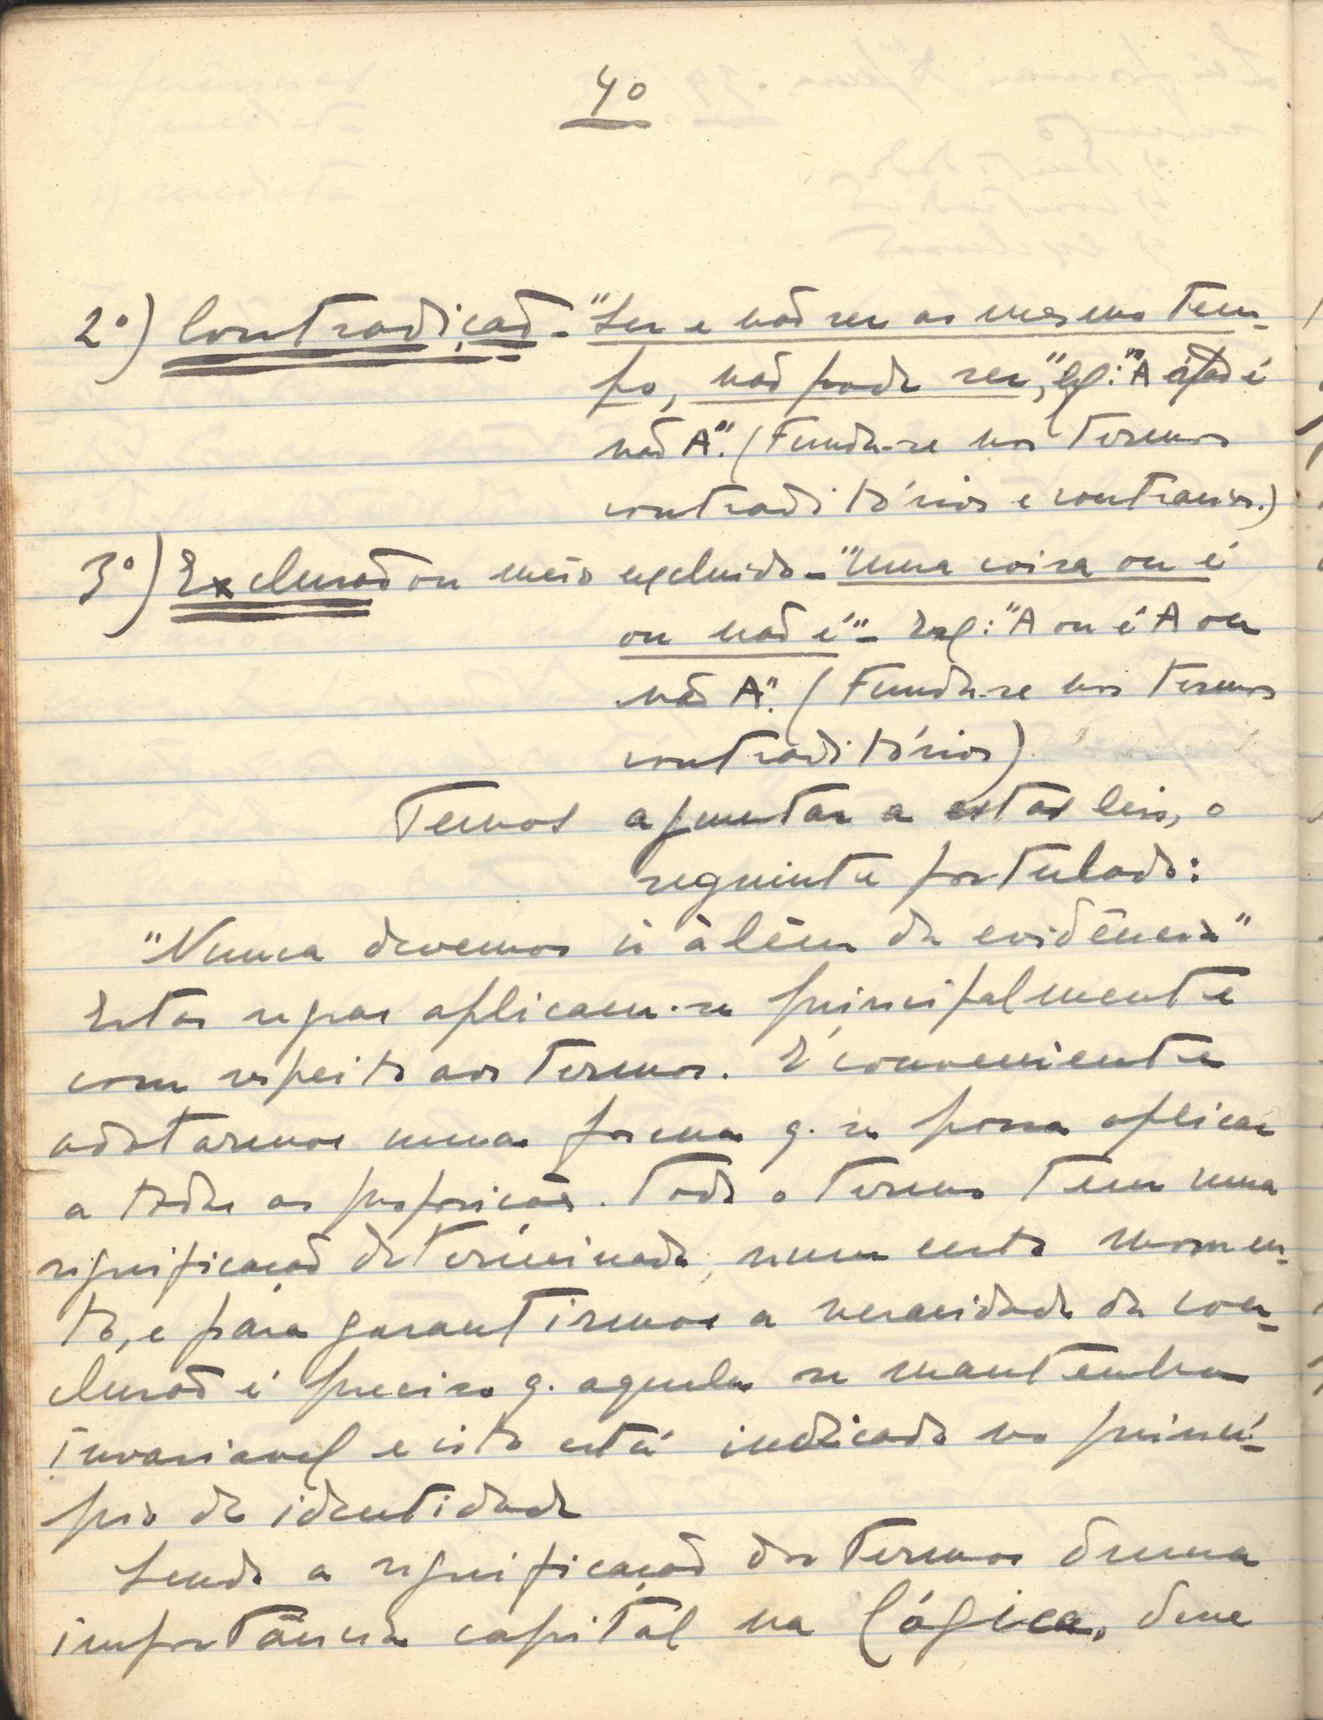 40
2º) Contradição - "Ser e não ser ao mesmo tem-
po, não pode ser", Ex: "A não é
não A". (Funda-se nos termos
contraditórios e contrarios.)
3º) Exclusão ou meio excluido - "Uma coisa ou é
ou não é" - Ex: "A ou é A ou
não A". (Funda-se nos termos
contraditórios)
Temos a juntar a estas leis, o
seguinte postulado:
"Nunca devemos ir àlém da evidência"
Estas regras aplicam-se principalmente
com respeito aos termos. É conveniente
adotarmos uma forma q. se possa aplicar
a todas as proposições. Todo o termo tem uma
significação determinada, num certo momen-
to, e para garantirmos a veracidade da con-
clusão é preciso q. aquela se mantenha
invariavel e isto está indicado no princí-
pio de identidade
Sendo a significação dos termos duma
importância capital na Lógica, deve